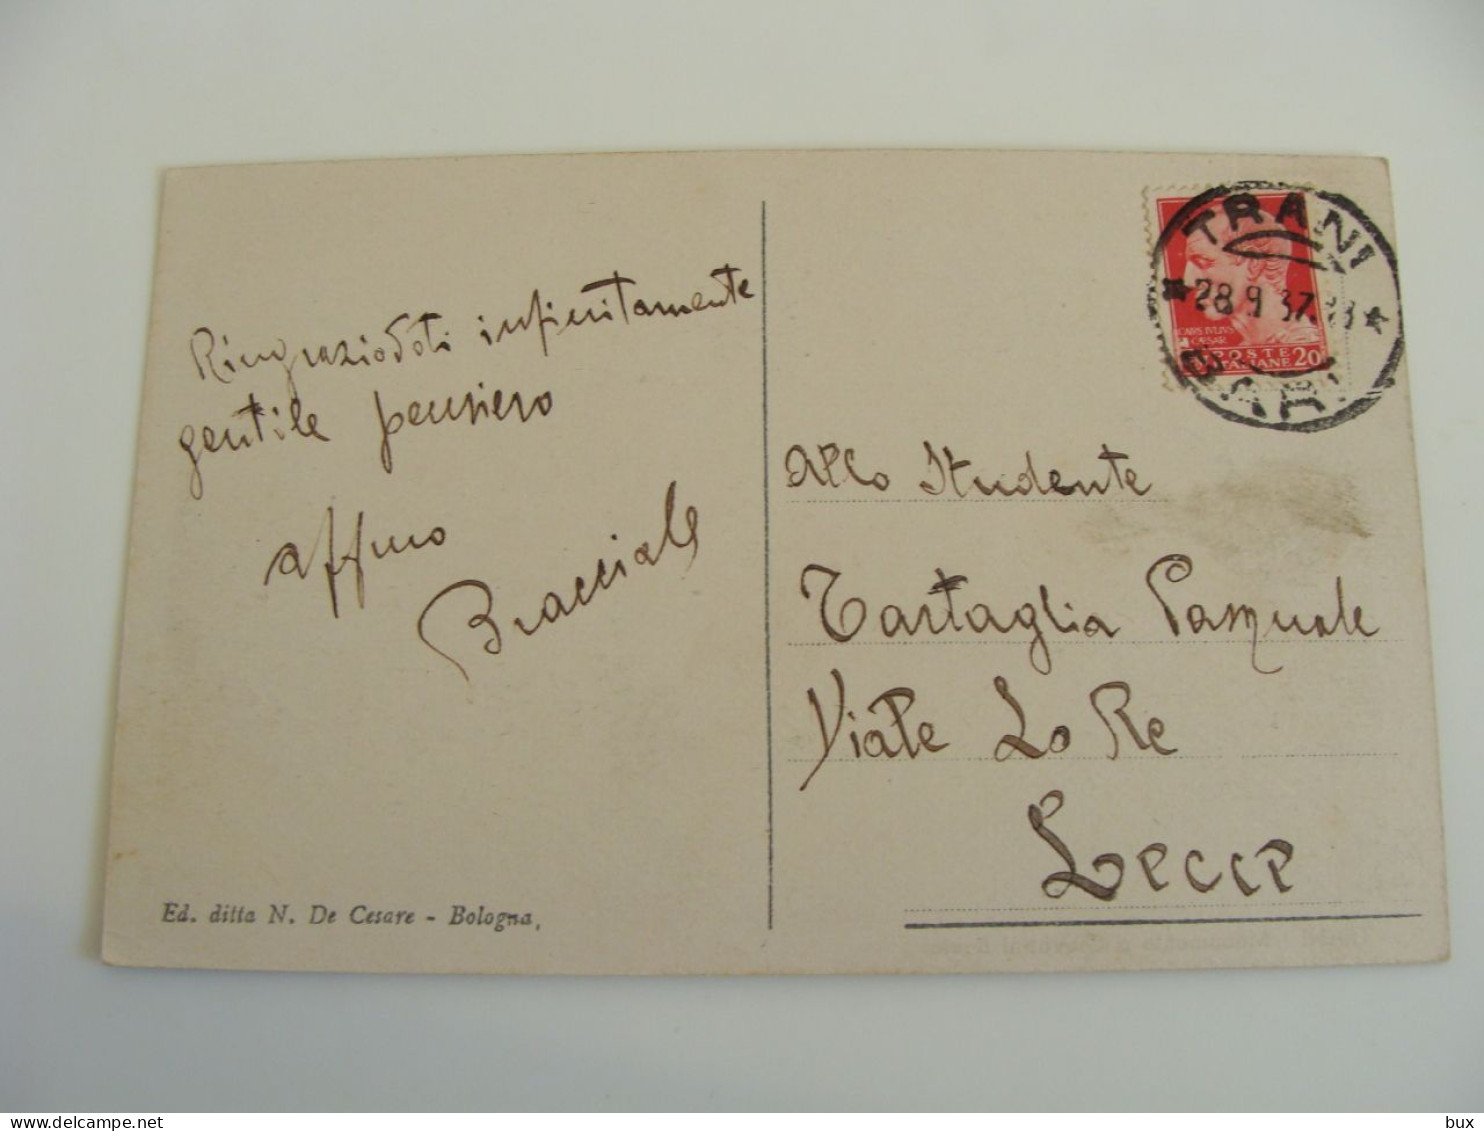 Ringraziodoti infinitamente
gentile pensiero
affmo
Bracciale
Ed. ditta N. De Cesare - Bologna.
TRANI
28.9.37.
BARI
CAIVS IVLIVS
CAESAR
POSTE
ITALIANE 20
Allo Studente
Tartaglia Pasquale
Viale Lo Re
Lecce
bux